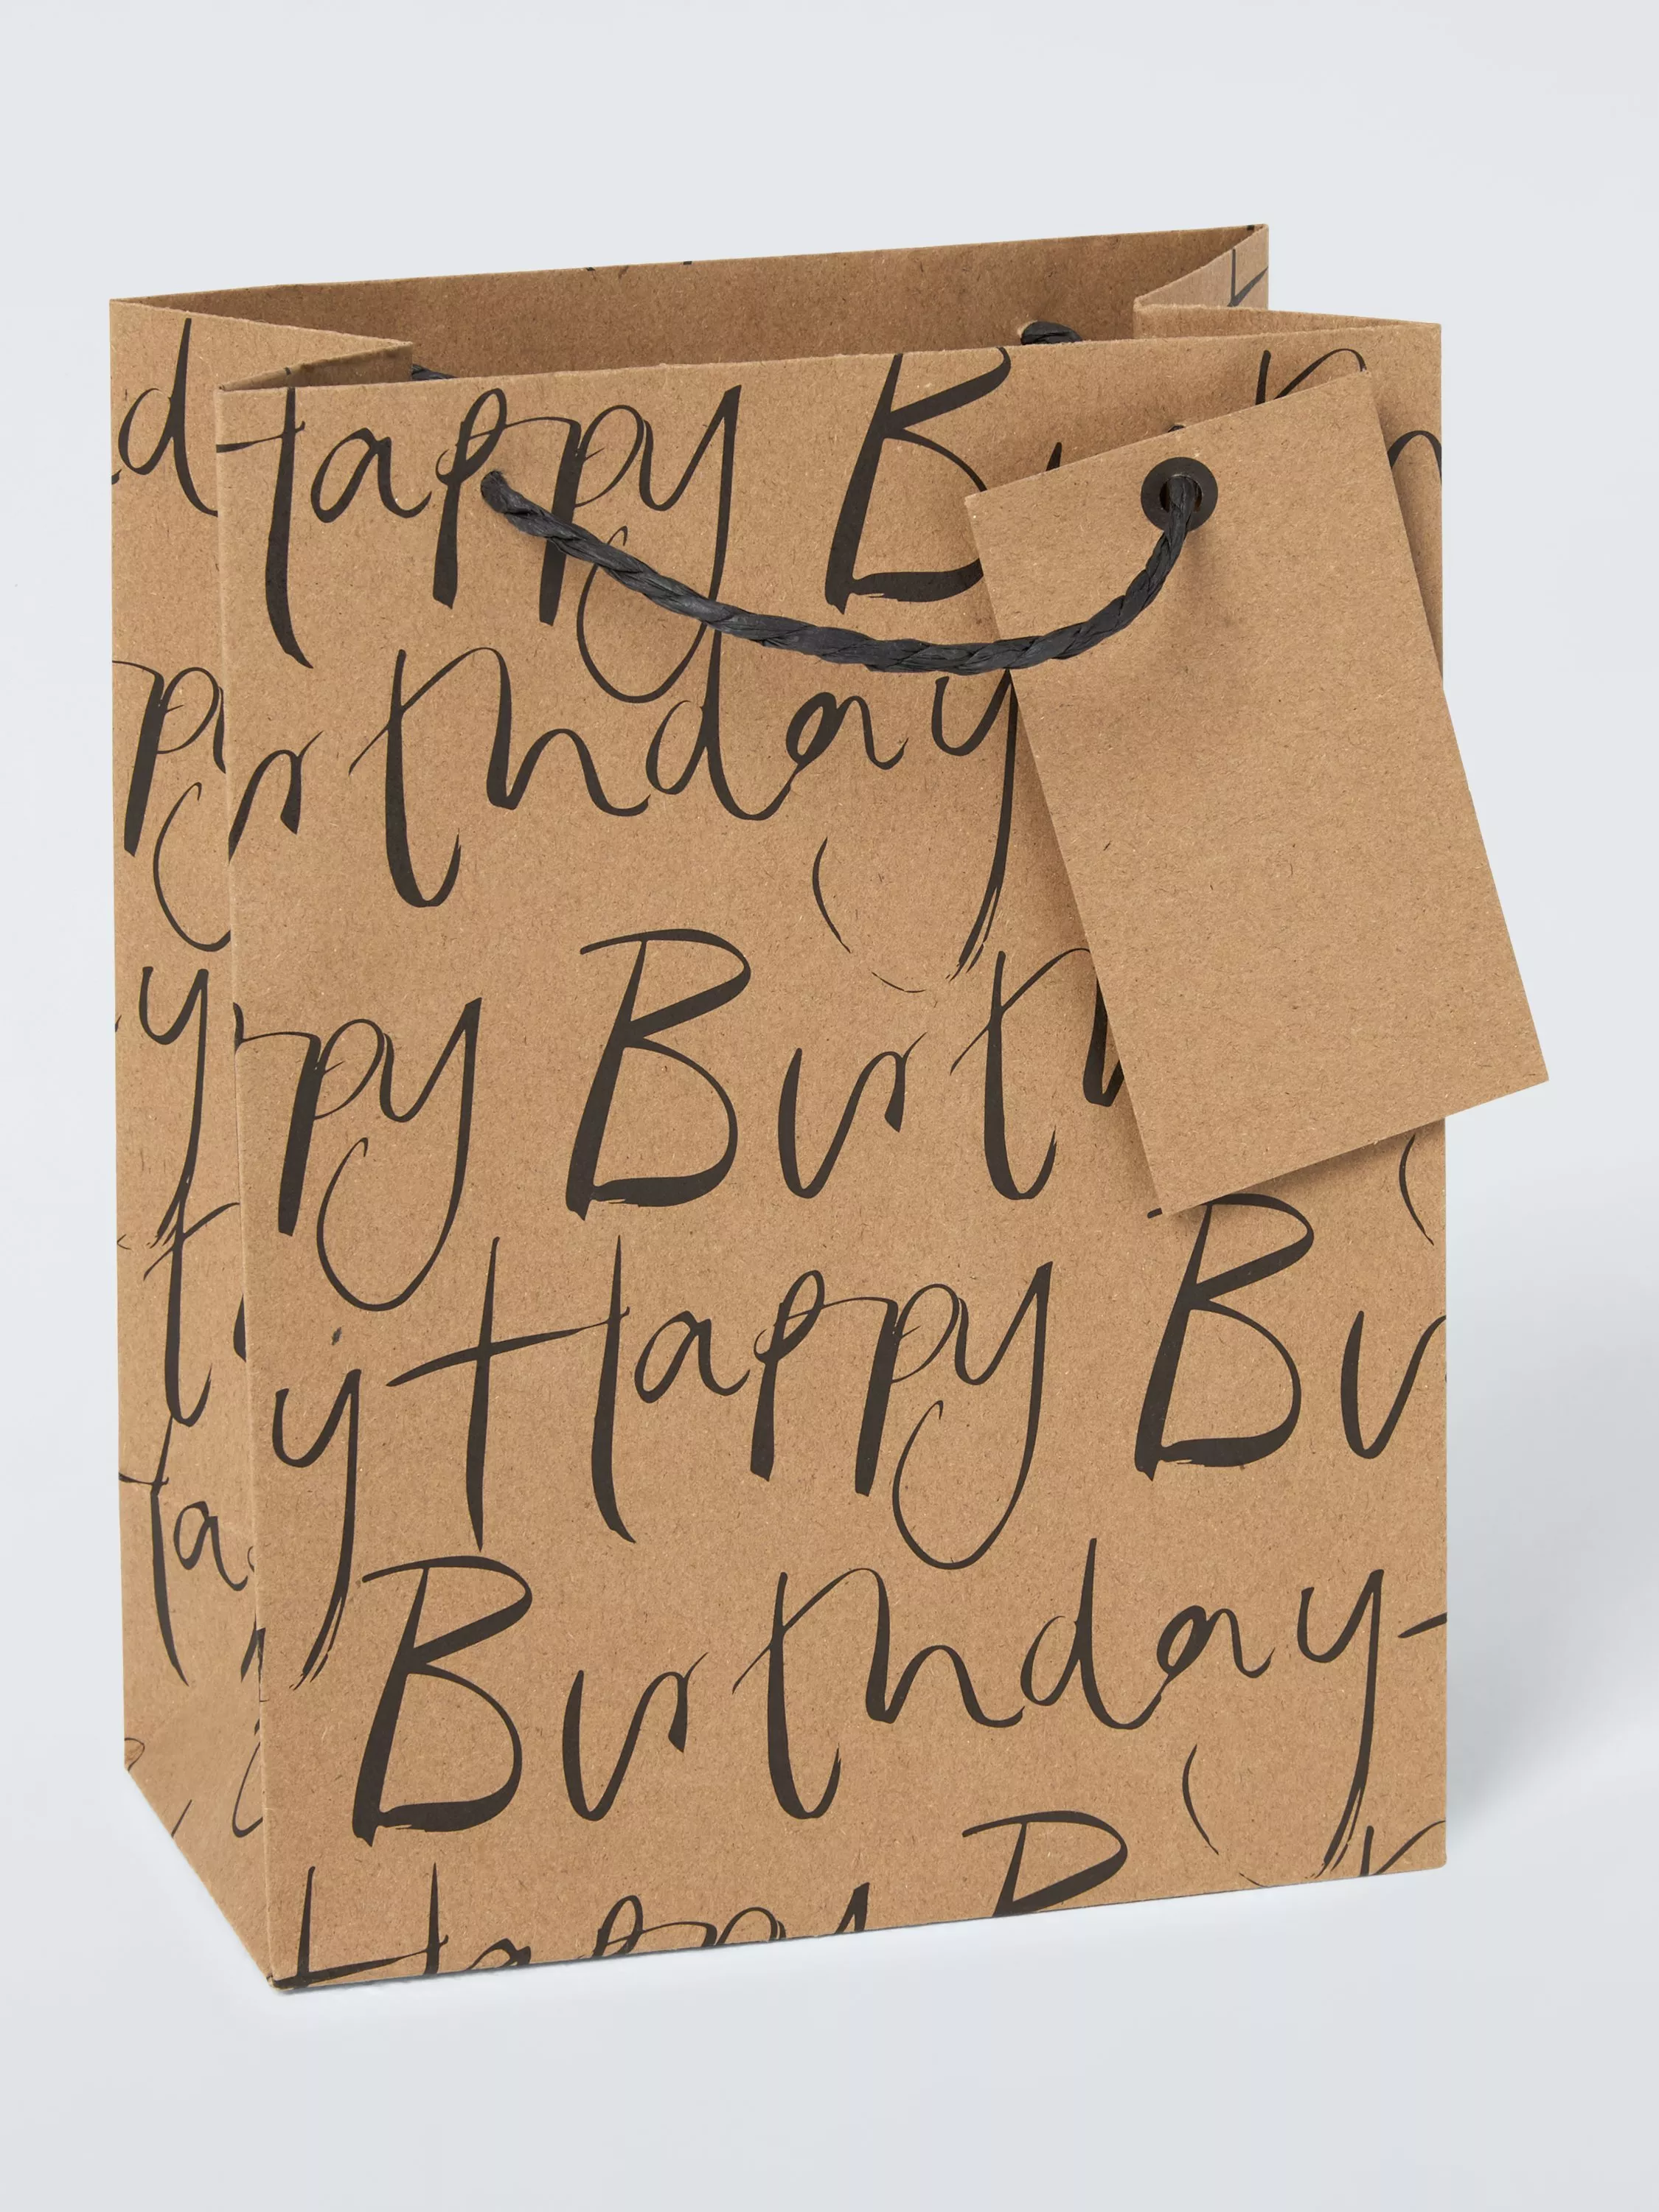 Happy B
irthday
ppy Birth
y Happy Bir
Birthday
Happy B